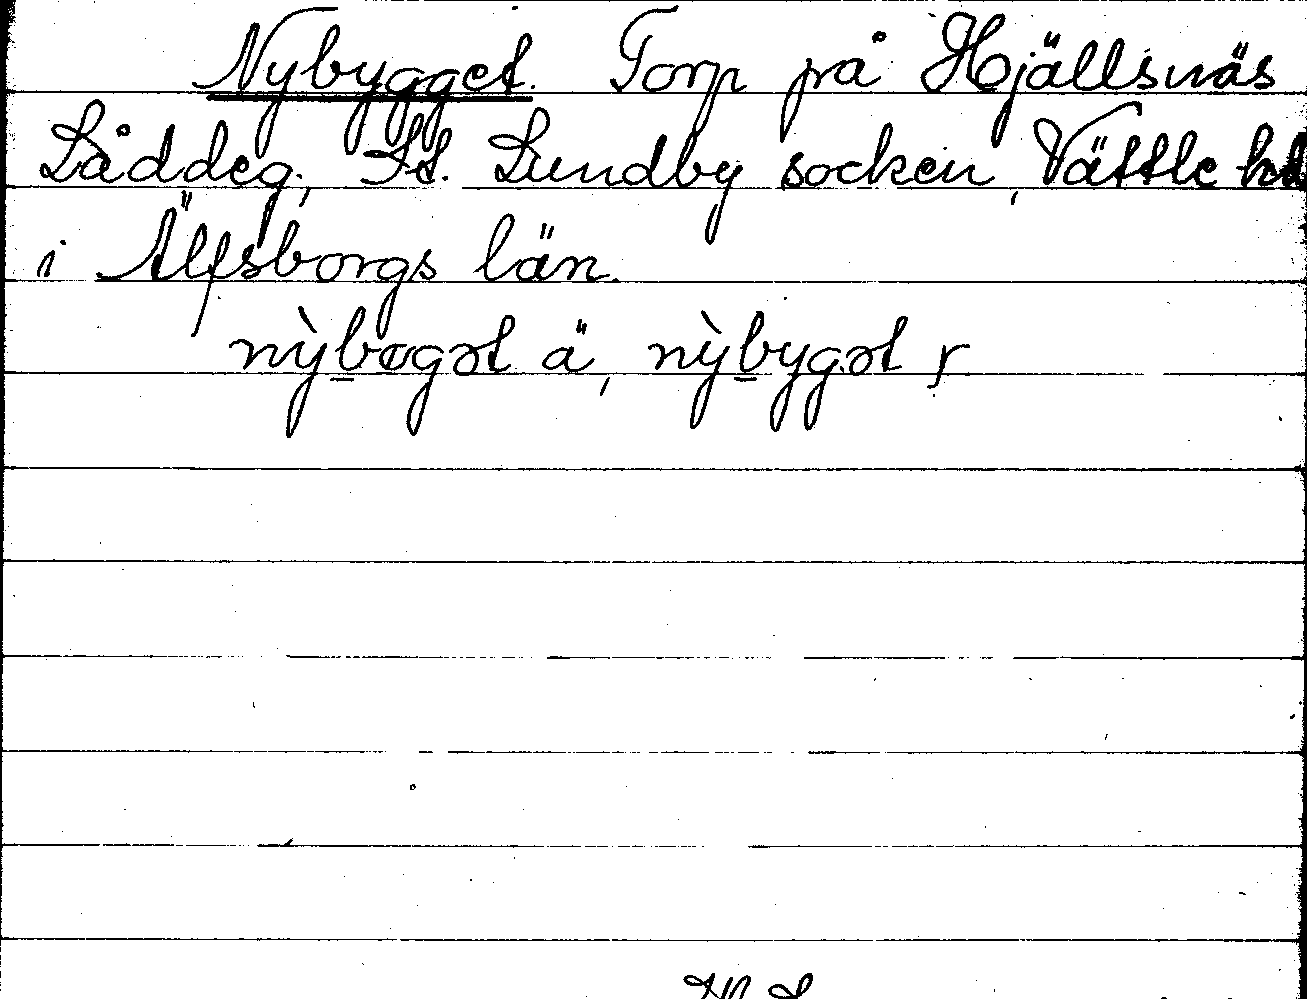 Nybygget. Torp på Hjällsnäs
Låddeg; St. Lundby socken, Vättle hd
i Älfsborgs län.
nỳbøgət ä, nỳbygət y